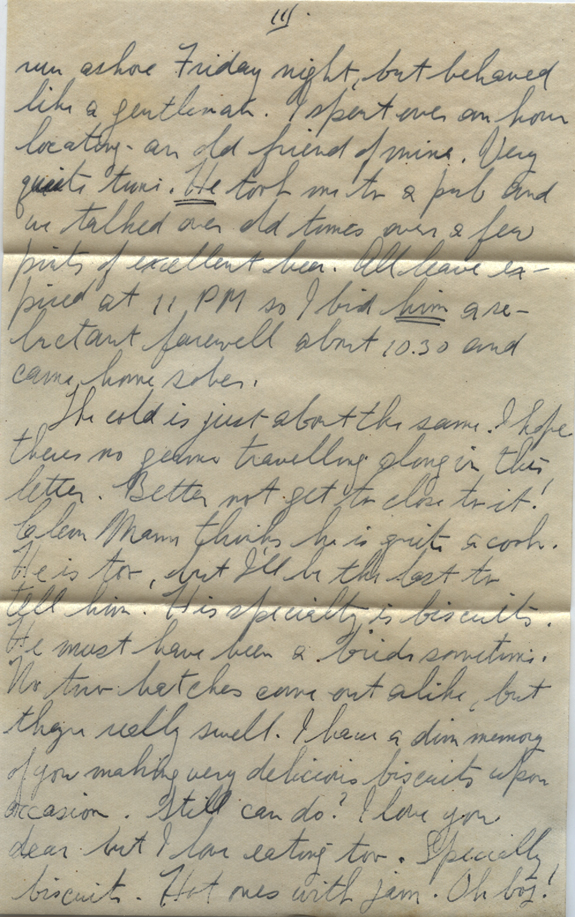 III.
run ashore Friday night, but behaved
like a gentleman. I spent over an hour
locating an old friend of mine. Very
quiet time. He took me to a pub and
we talked over old times over a few
pints of excellent beer. All leave ex-
pired at 11 PM so I bid him a re-
luctant farewell about 10.30 and
came home sober.
The cold is just about the same. I hope
theres no germs travelling along in this
letter. Better not get to close to it!
Mann thinks he is quite a cook.
He is too, but I'll be the last to
tell him. His specialty is biscuits.
He must have been a bride sometime.
No two batches come out alike, but
they're really swell. I have a dim memory
of you making very delicious biscuits upon
occasion. Still can do? I love you
dear but I love eating too. Specially
biscuits. Hot ones with jam. Oh boy!